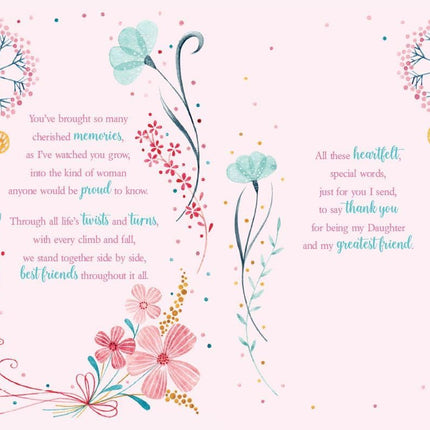 You've brought so many
cherished memories,
as I've watched you grow,
into the kind of woman
anyone would be proud to know.
Through all life's twists and turns,
with every climb and fall,
we stand together side by side,
best friends throughout it all.
All these heartfelt,
special words,
just for you I send,
to say thank you
for being my Daughter
and my greatest friend.